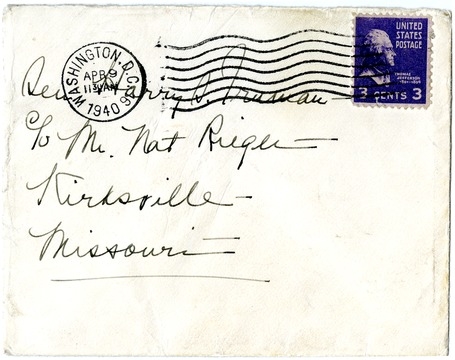 WASHINGTON, D.C.
APR 9
11 30 AM
1940
UNITED
STATES
POSTAGE
THOMAS
JEFFERSON
3 CENTS 3
Sen. Harry S. Truman
c/o Mr. Nat Rieger
Kirksville
Missouri